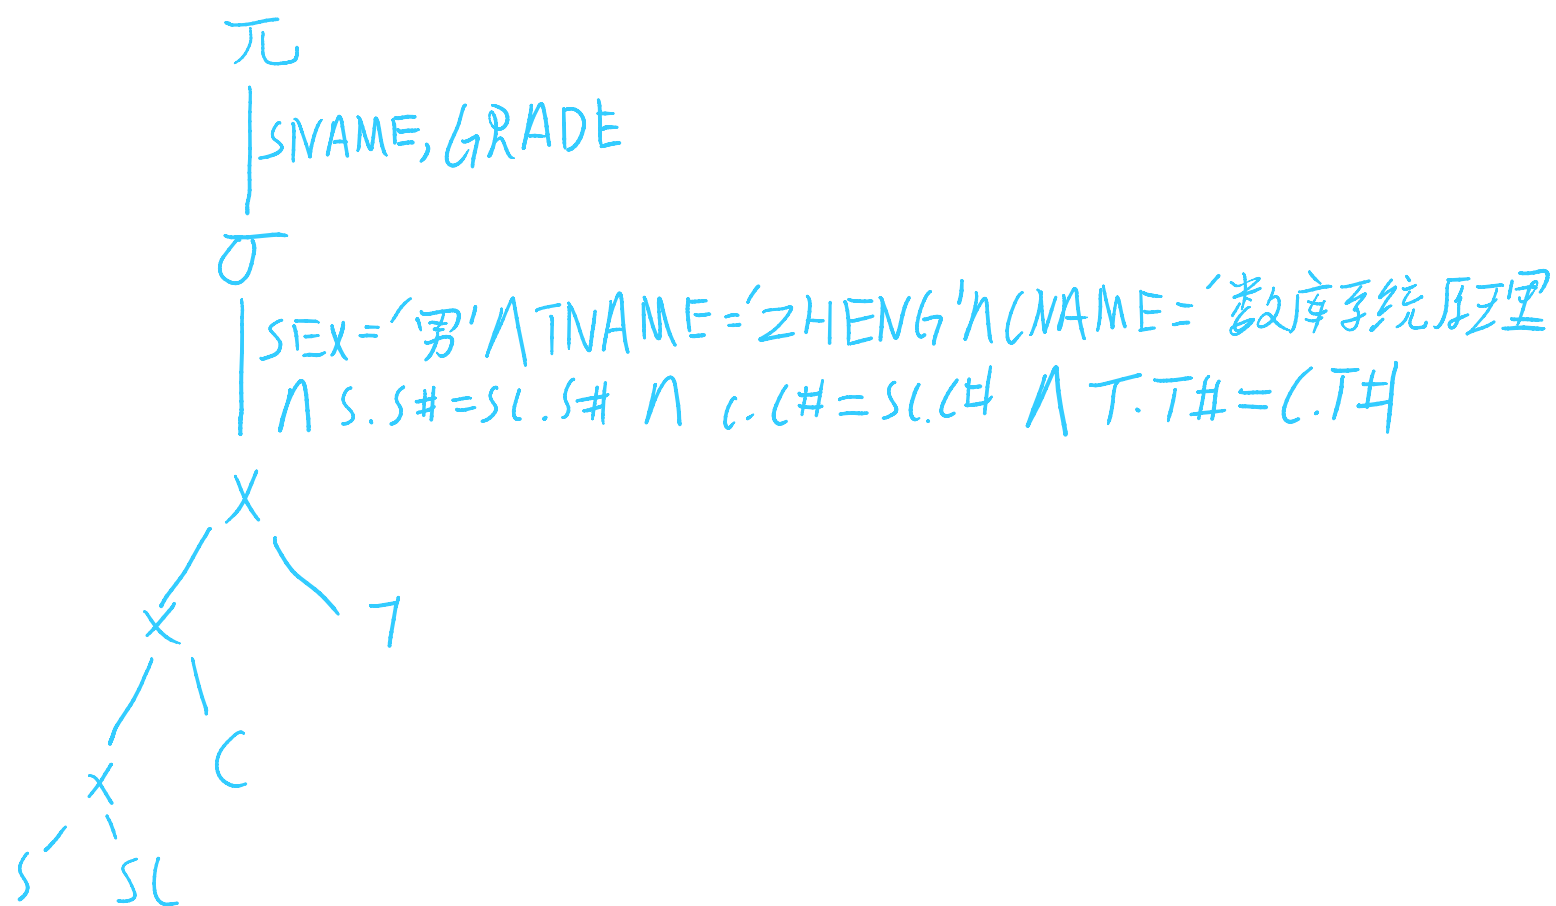 π
SNAME, GRADE
σ
SEX='男'∧TNAME='ZHENG'∧CNAME='数库系统原理
∧ S.S#=SC.S# ∧ C.C#=SC.C# ∧ T.T#=C.T#
X
X T
X C
S SC